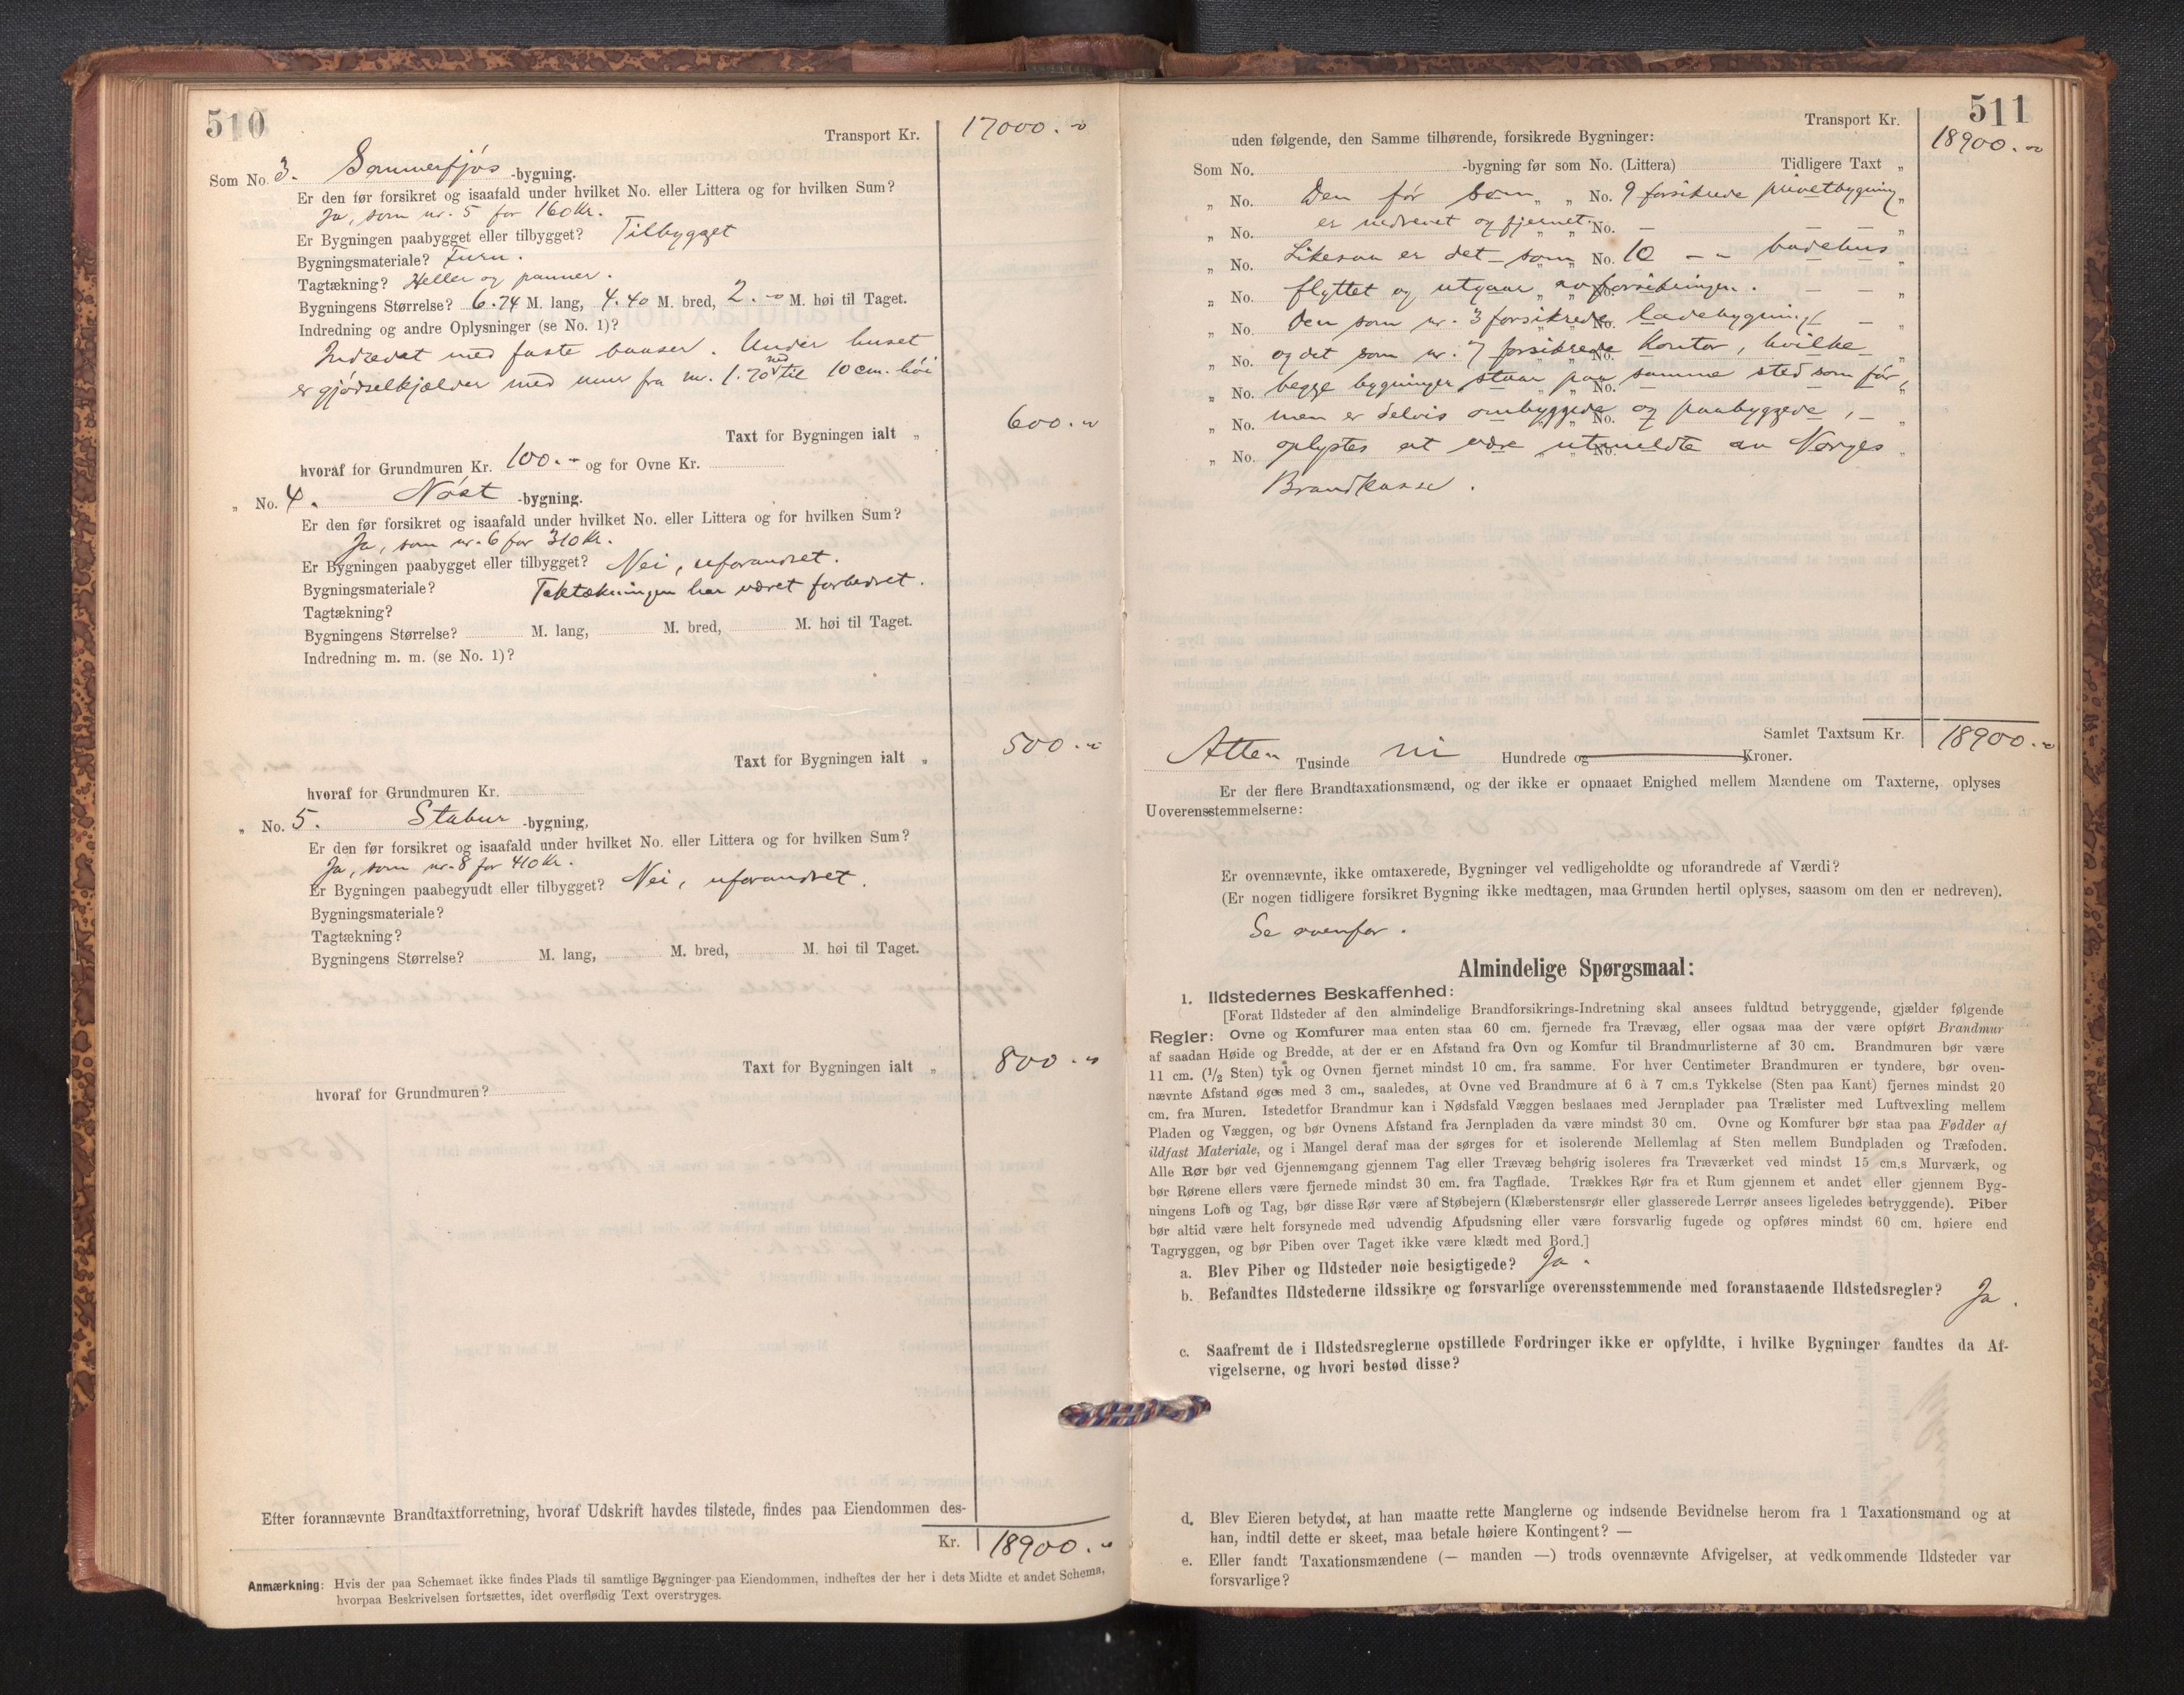 510
Transport Kr. 17000.-
Som No. 3. Sommerfjös -bygning.
Er den før forsikret og isaafald under hvilket No. eller Littera og for hvilken Sum?
Ja, som nr. 5 for 160 Kr.
Er Bygningen paabygget eller tilbygget? Tilbygget
Bygningsmateriale? Furu.
Tagtækning? Heller og panner.
Bygningens Størrelse? 6.74 M. lang, 4.40 M. bred, 2.- M. høi til Taget.
Indredning og andre Oplysninger (se No. 1)?
Indredet med faste baaser. Under huset
er gjödselkjælder med mur fra m. 1.70 ned til 10 cm. höi
Taxt for Bygningen ialt „ 600.-
hvoraf for Grundmuren Kr. 100.- og for Ovne Kr.
„ No. 4. Nöst -bygning.
Er den før forsikret og isaafald under hvilket No. eller Littera og for hvilken Sum?
Ja, som nr. 6 for 310 Kr.
Er Bygningen paabygget eller tilbygget? Nei, uforandret.
Bygningsmateriale? Taktækningen har været forbedret.
Tagtækning?
Bygningens Størrelse? M. lang, M. bred, M. høi til Taget.
Indredning m. m. (se No. 1)?
Taxt for Bygningen ialt „ 500.-
hvoraf for Grundmuren Kr.
„ No. 5. Stabur -bygning,
Er den før forsikret og isaafald under hvilket No. eller Littera og for hvilken Sum?
Ja, som nr. 8 for 410 Kr.
Er Bygningen paabegyudt eller tilbygget? Nei, uforandret.
Bygningsmateriale?
Tagtækning?
Bygningens Størrelse? M. lang, M. bred, M. høi til Taget.
Taxt for Bygningen ialt „ 800.-
hvoraf for Grundmuren?
Efter forannævnte Brandtaxtforretning, hvoraf Udskrift havdes tilstede, findes paa Eiendommen des-
Kr. 18900.-
Anmærkning: Hvis der paa Schemaet ikke findes Plads til samtlige Bygninger paa Eiendommen, indheftes der her i dets Midte et andet Schema,
hvorpaa Beskrivelsen fortsættes, idet overflødig Text overstryges.
511
Transport Kr. 18900.-
uden følgende, den Samme tilhørende, forsikrede Bygninger:
Som No. -bygning før som No. (Littera) Tidligere Taxt „
„ No. Den för som „ „ No. 9 forsikrede privetbygning „
„ No. er nedrevet og fjernet. „ „ No. — — — „
„ No. Likesaa er det som „ No. 10 — badehus „
„ No. flyttet og utgaar av forsikringen. „ „ No. — — „
„ No. Den som nr. 3 forsikrede No. ladebygning — „
„ No. og det som nr. 7 forsikrede No. Kontor, hvilke „
„ No. begge bygninger staar paa No. samme sted som för, „
„ No. men er delvis ombyggede No. og paabyggede, — „
„ No. oplystes at være utmeldte No. av Norges „
Brandkasse.
Samlet Taxtsum Kr. 18900.-
Atten Tusinde ni Hundrede og Kroner.
Er der flere Brandtaxationsmænd, og der ikke er opnaaet Enighed mellem Mændene om Taxterne, oplyses
Uoverensstemmelserne:
Er ovennævnte, ikke omtaxerede, Bygninger vel vedligeholdte og uforandrede af Værdi?
(Er nogen tidligere forsikret Bygning ikke medtagen, maa Grunden hertil oplyses, saasom om den er nedreven).
Se ovenfor.
Almindelige Spørgsmaal:
1. Ildstedernes Beskaffenhed:
[Forat Ildsteder af den almindelige Brandforsikrings-Indretning skal ansees fuldtud betryggende, gjælder følgende
Regler: Ovne og Komfurer maa enten staa 60 cm. fjernede fra Trævæg, eller ogsaa maa der være opført Brandmur
af saadan Høide og Bredde, at der er en Afstand fra Ovn og Komfur til Brandmurlisterne af 30 cm. Brandmuren bør være
11 cm. (1/2 Sten) tyk og Ovnen fjernet mindst 10 cm. fra samme. For hver Centimeter Brandmuren er tyndere, bør oven-
nævnte Afstand øges med 3 cm., saaledes, at Ovne ved Brandmure af 6 à 7 cm.s Tykkelse (Sten paa Kant) fjernes mindst 20
cm. fra Muren. Istedetfor Brandmur kan i Nødsfald Væggen beslaaes med Jernplader paa Trælister med Luftvexling mellem
Pladen og Væggen, og bør Ovnens Afstand fra Jernpladen da være mindst 30 cm. Ovne og Komfurer bør staa paa Fødder af
ildfast Materiale, og i Mangel deraf maa der sørges for et isolerende Mellemlag af Sten mellem Bundpladen og Træfoden.
Alle Rør bør ved Gjennemgang gjennem Tag eller Trævæg behørig isoleres fra Træværket ved mindst 15 cm.s Murværk, og
bør Rørene ellers være fjernede mindst 30 cm. fra Tagflade. Trækkes Rør fra et Rum gjennem et andet eller gjennem Byg-
ningens Loft og Tag, bør disse Rør være af Støbejern (Klæberstensrør eller glasserede Lerrør ansees ligeledes betryggende). Piber
bør altid være helt forsynede med udvendig Afpudsning eller være forsvarlig fugede og opføres mindst 60 cm. høiere end
Tagryggen, og bør Piben over Taget ikke være klædt med Bord.]
a. Blev Piber og Ildsteder nøie besigtigede? Ja.
b. Befandtes Ildstederne ildssikre og forsvarlige overensstemmende med foranstaaende Ildstedsregler? Ja.
c. Saafremt de i Ildstedsreglerne opstillede Fordringer ikke er opfyldte, i hvilke Bygninger fandtes da Af-
vigelserne, og hvori bestod disse?
d. Blev Eieren betydet, at han maatte rette Manglerne og indsende Bevidnelse herom fra 1 Taxationsmand og at
han, indtil dette er skeet, maa betale høiere Kontingent? —
e. Eller fandt Taxationsmændene (— manden —) trods ovennævnte Afvigelser, at vedkommende Ildsteder var
forsvarlige?